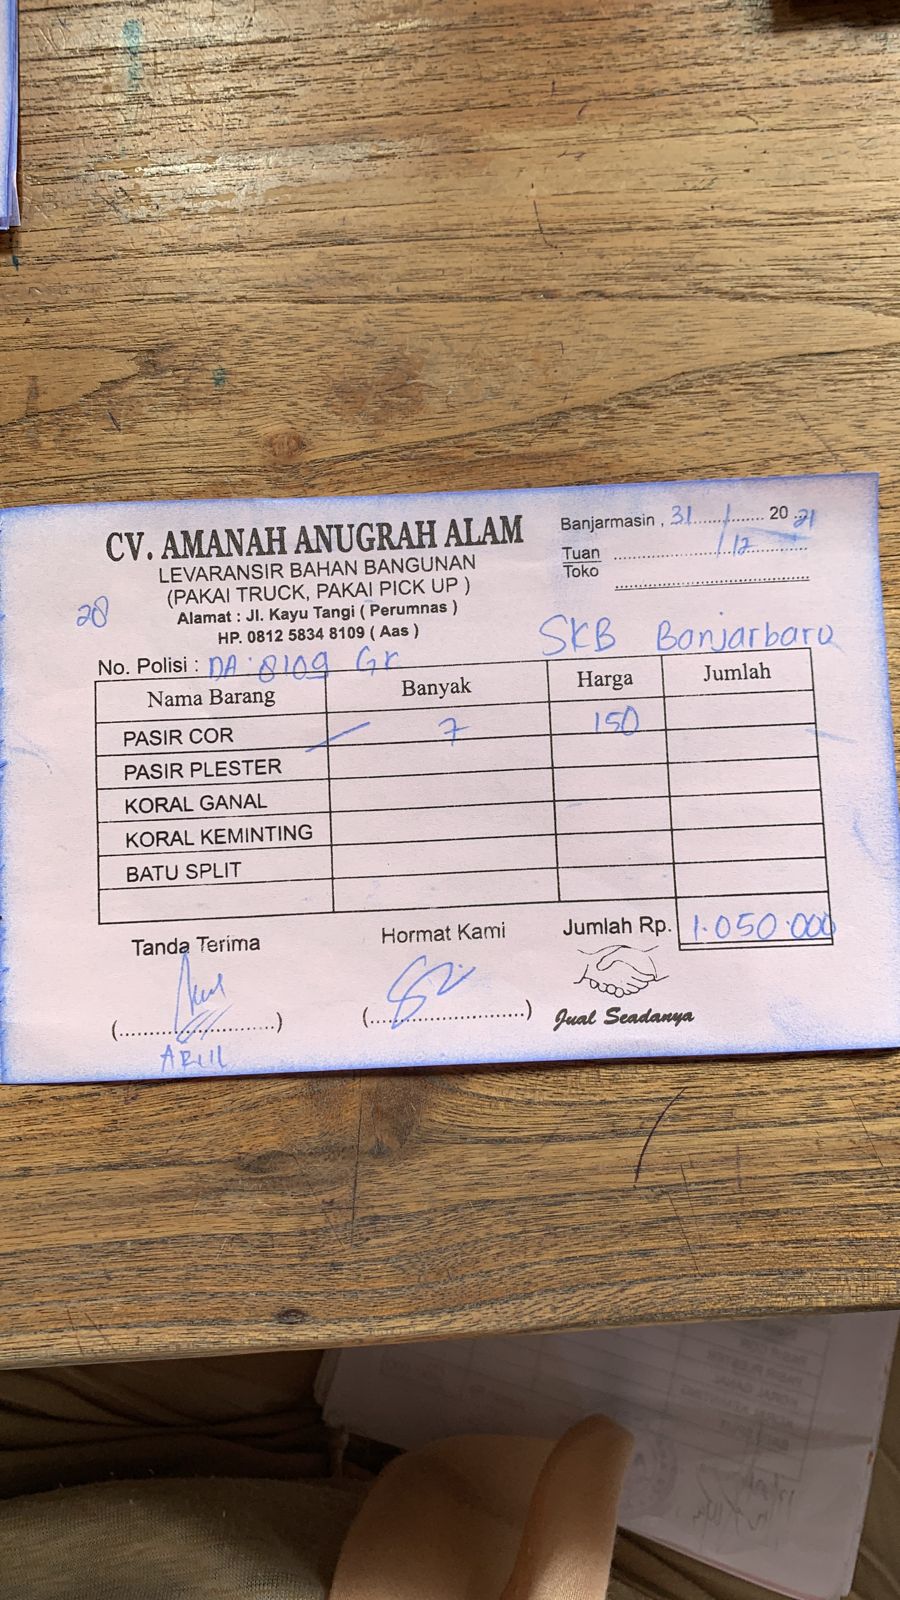 CV. AMANAH ANUGRAH ALAM
LEVARANSIR BAHAN BANGUNAN
(PAKAI TRUCK, PAKAI PICK UP )
Alamat : Jl. Kayu Tangi ( Perumnas )
HP. 0812 5834 8109 ( Aas )
28
Banjarmasin , 31 / 12 20 21
Tuan
Toko
SKB Banjarbaru
No. Polisi : DA 8109 GK
Nama Barang Banyak Harga Jumlah
PASIR COR 7 150
PASIR PLESTER
KORAL GANAL
KORAL KEMINTING
BATU SPLIT
Jumlah Rp. 1.050.000
Tanda Terima Hormat Kami
(..............................) (..............................)
ARUL
Jual Seadanya